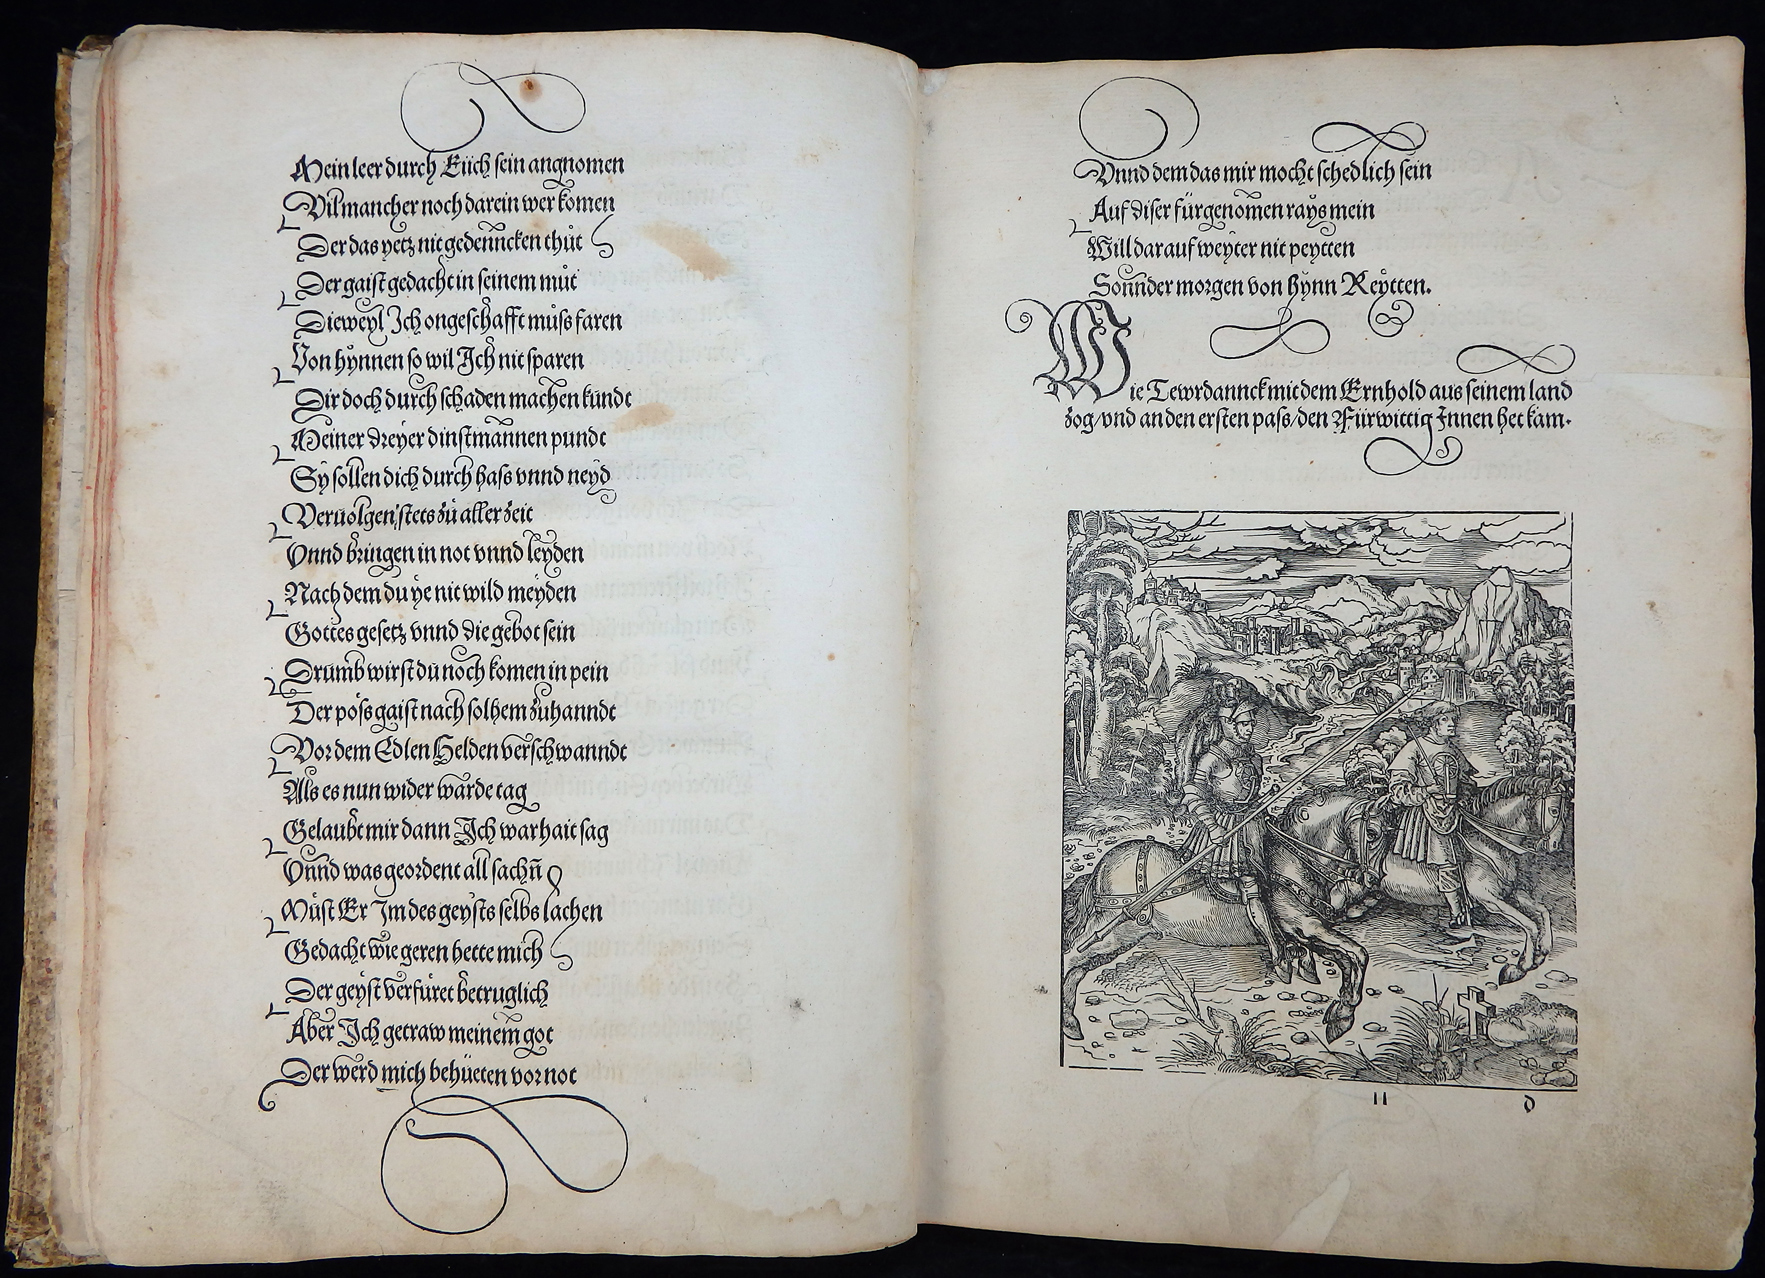 Mein leer durch Eüch sein angnomen
Vil mancher noch darein wer komen
Der das yetz nit gedenncken thůt
Der gaist gedacht in seinem můt
Dieweyl Ich ongeschafft můss faren
Von hynnen so wil Ich nit sparen
Dir doch durch schaden machen kundt
Meiner dreyer dinstmannen pundt
Sy sollen dich durch hass vnnd neyd
Veruolgen stets zů aller zeit
Vnnd bringen in not vnnd leyden
Nach dem du ye nit wild meyden
Gottes gesetz vnnd die gebot sein
Drumb wirst du noch komen in pein
Der pöss gaist nach solhem zuhanndt
Vor dem Edlen Helden verschwanndt
Als es nun wider warde tag
Gelaubt mir dann Ich warhait sag
Vnnd was geordent all sachn̄
Můst Er Im des geysts selbs lachen
Gedacht wie geren hette mich
Der geyst verfüret betruglich
Aber Ich getraw meinem got
Der werd mich behüeten vor not
Vnnd dem das mir mocht schedlich sein
Auf diser fürgenomen rays mein
Will darauf weyter nit peytten
Sonnder morgen von hynn Reytten.
WIe Tewrdannck mit dem Ernhold aus seinem land
zog/vnd an den ersten pass/den Fürwittig Innen het kam.
11 d